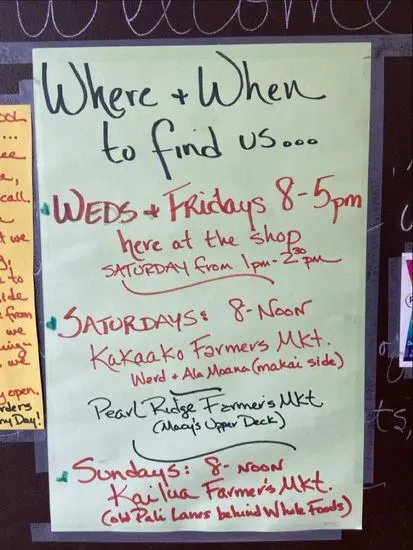 Welcome
Where + When
to find us...
WEDS + Fridays 8-5pm
here at the shop
SATURDAY from 1pm-2:30pm
SATURDAYS: 8-NOON
Kakaako Farmers Mkt.
Werd + Ala Moana (makai side)
Pearl Ridge Farmer's Mkt.
(Macy's Upper Deck)
Sundays: 8-NOON
Kailua Farmer's Mkt.
(old Pali Lanes behind Whole Foods)
call.
we
to
side
from
we
we
open.
orders
ny Day!